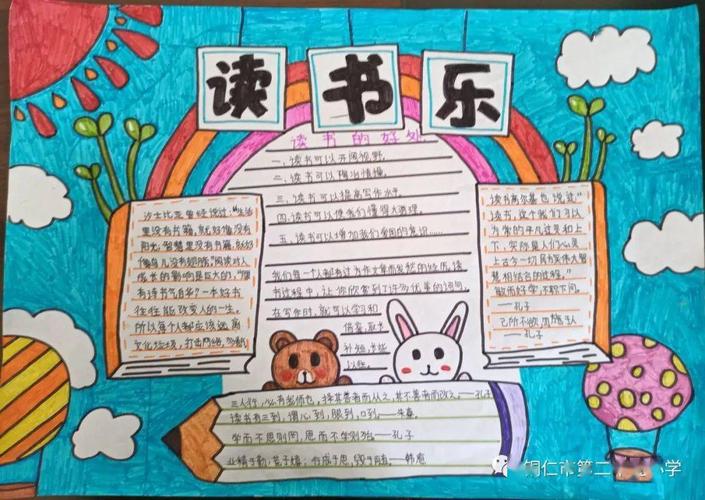 读书乐
读书的好处
一、读书可以开阔视野。
二、读书可以陶冶情操。
三、读书可以提高写作水平。
四、读书可以使我们懂得大道理。
五、读书可以增加我们爱国的意识……
我们是一个人都有过为作文章而发愁的经历,读
书过程中,让你欣赏到了许多优美的词句。
在写作时,就可以学习和
借鉴,取长
补短,
沙士比亚曾经说过:“生活
里没有书籍,就好像没有
阳光;智慧里没有书籍,就好
像鸟儿没有翅膀。”阅读对人
成长的影响是巨大的,“腹
有诗书气自华”一本好书
往往能改变人的一生。
所以每个人都应该远离
文化垃圾,
读书高尔基也说过”
读书,这个我们习以
为常的平凡过程和上
下,实际是人们心灵
上古今一切民族伟大智
慧相结合的过程。”
敏而好学,不耻下问。
——孔子
己所不欲,勿施于人
——孔子
三人行,必有我师也,择其善者而从之,其不善者而改之。——孔子
读书有三到,谓心到,眼到,口到。——朱熹
学而不思则罔,思而不学则殆。——孔子
业精于勤,荒于嬉;行成于思,毁于随。——韩愈
铜仁市第二 小学